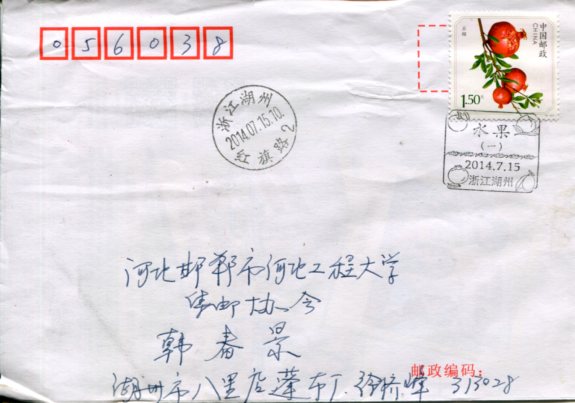 056038
中国邮政
CHINA
石榴
1.50元
浙江湖州
2014.07.15.10
红旗路2
水果
(一)
2014.7.15
浙江湖州
河北邯郸市河北工程大学
集邮协会
韩春景
邮政编码:
湖州市八里店蓬布厂 徐桥峰 313028